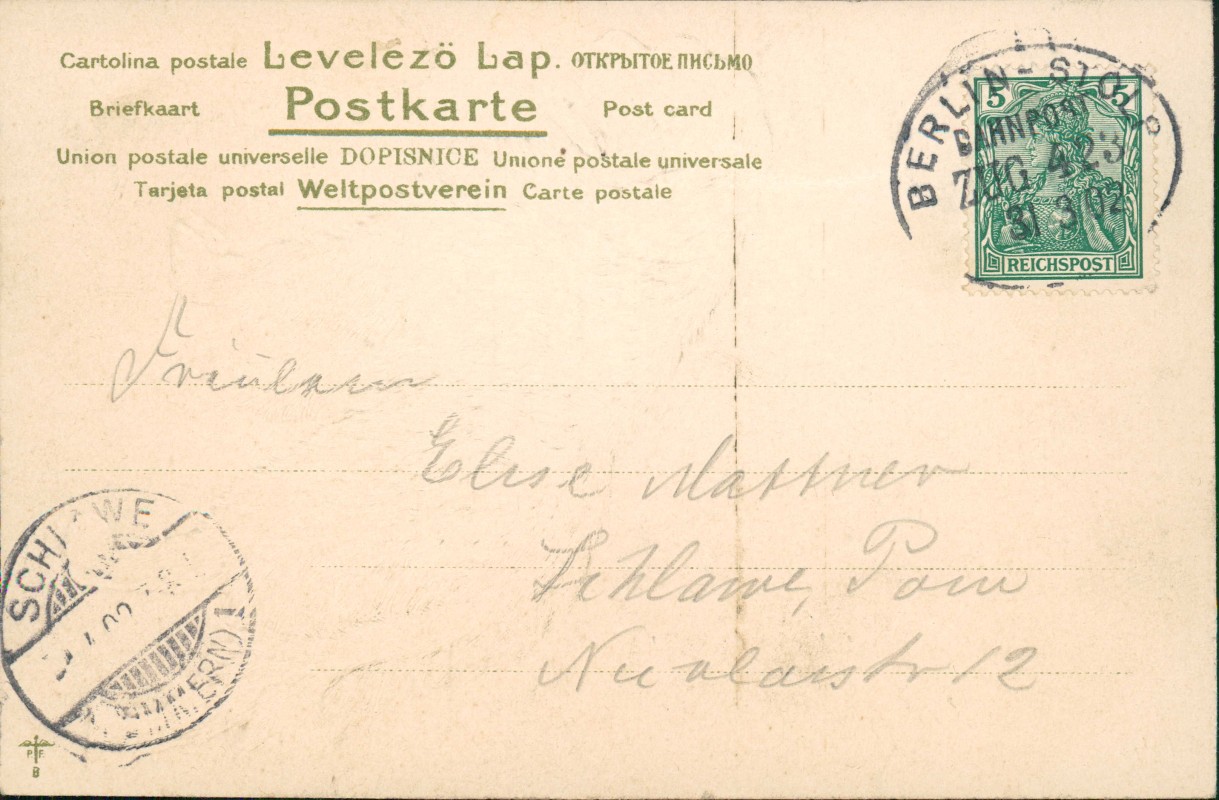 Cartolina postale Levelezö Lap. ОТКРЫТОЕ ПИСЬМО
Briefkaart Postkarte Post card
Union postale universelle DOPISNICE Unione postale universale
Tarjeta postal Weltpostverein Carte postale
BERLIN-STOLP
BAHNPOST
ZUG 423
31 3 02
5 5
REICHSPOST
Fräulein
Elise Mattner
Schlawe, Pom
12
SCHLAWE
(POMMERN) 1
P. F.
B